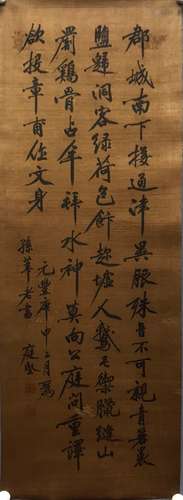 郡城南下接通津異服殊音不可親青箬裹
鹽歸洞客綠荷包飰趁墟人鵞毛禦臘縫山
罽鷄骨占年拜水神莫向公庭問重譯
欲投章甫作文身
元豐庚申二月寫
孫莘老書 庭堅